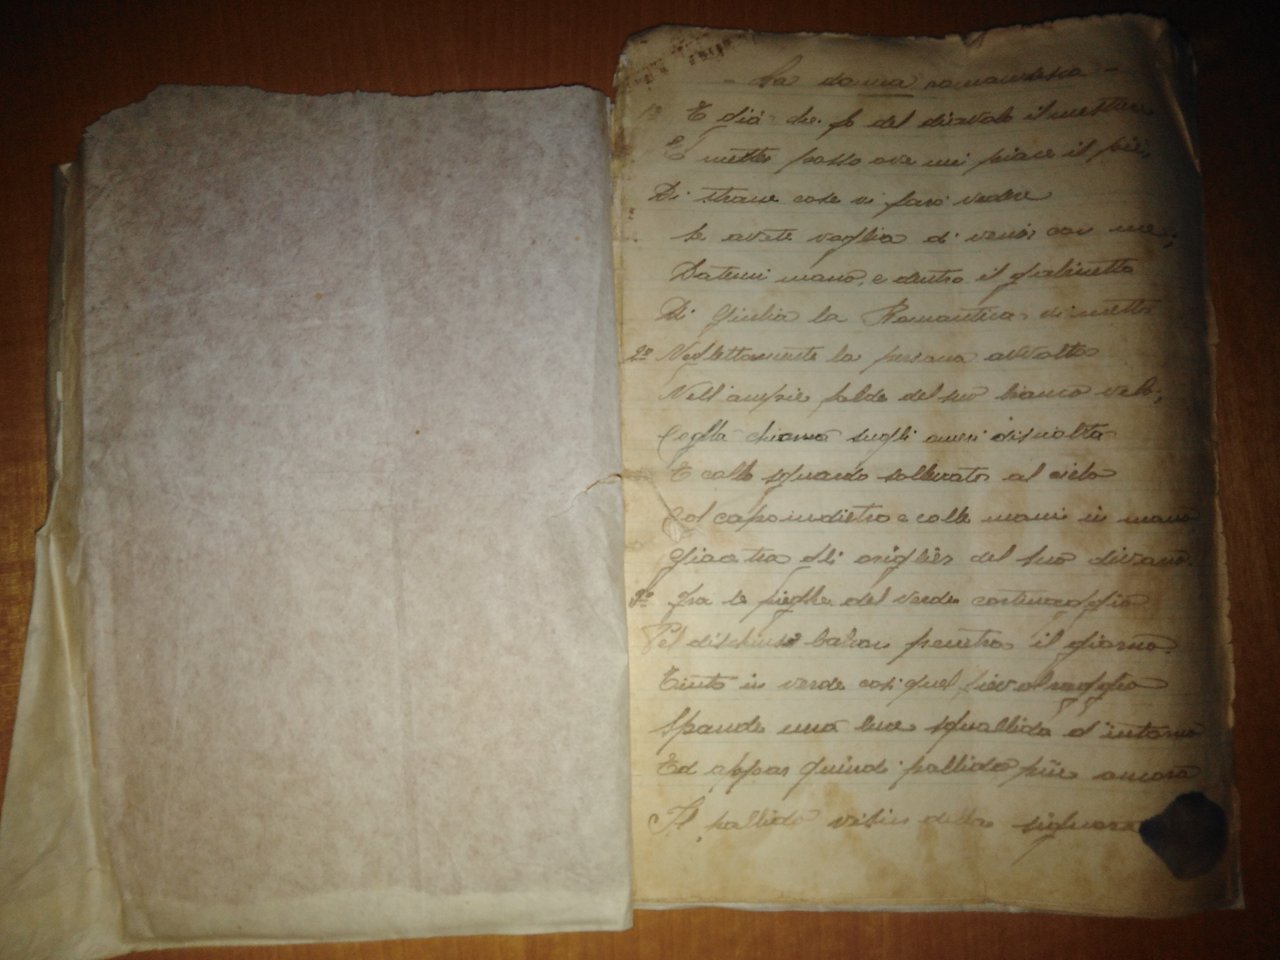 - La dama romantica -
1º E già che fo del diavolo il mestiere
E metto passo ove mi piace il piè,
Di strane cose vi farò vedere
Se avete voglia di venir con me;
Datemi mano, e dentro il gabinetto
Di Giulia la Romantica vi metto
2º Neglettamente la persona avvolta
Nell'ampie falde del suo bianco velo;
Colla chioma sugli omeri disciolta
E collo sguardo sollevato al cielo
Col capo indietro e colle mani in mano
Giace tra gli origlier del suo divano.
3º Fra le pieghe del verde cortinaggio
Pel dischiuso balcon penetra il giorno.
Tinto in verde così quel
Spande una luce squallida d'intorno
Ed appar quindi pallido più ancora
Il pallido viso della signora